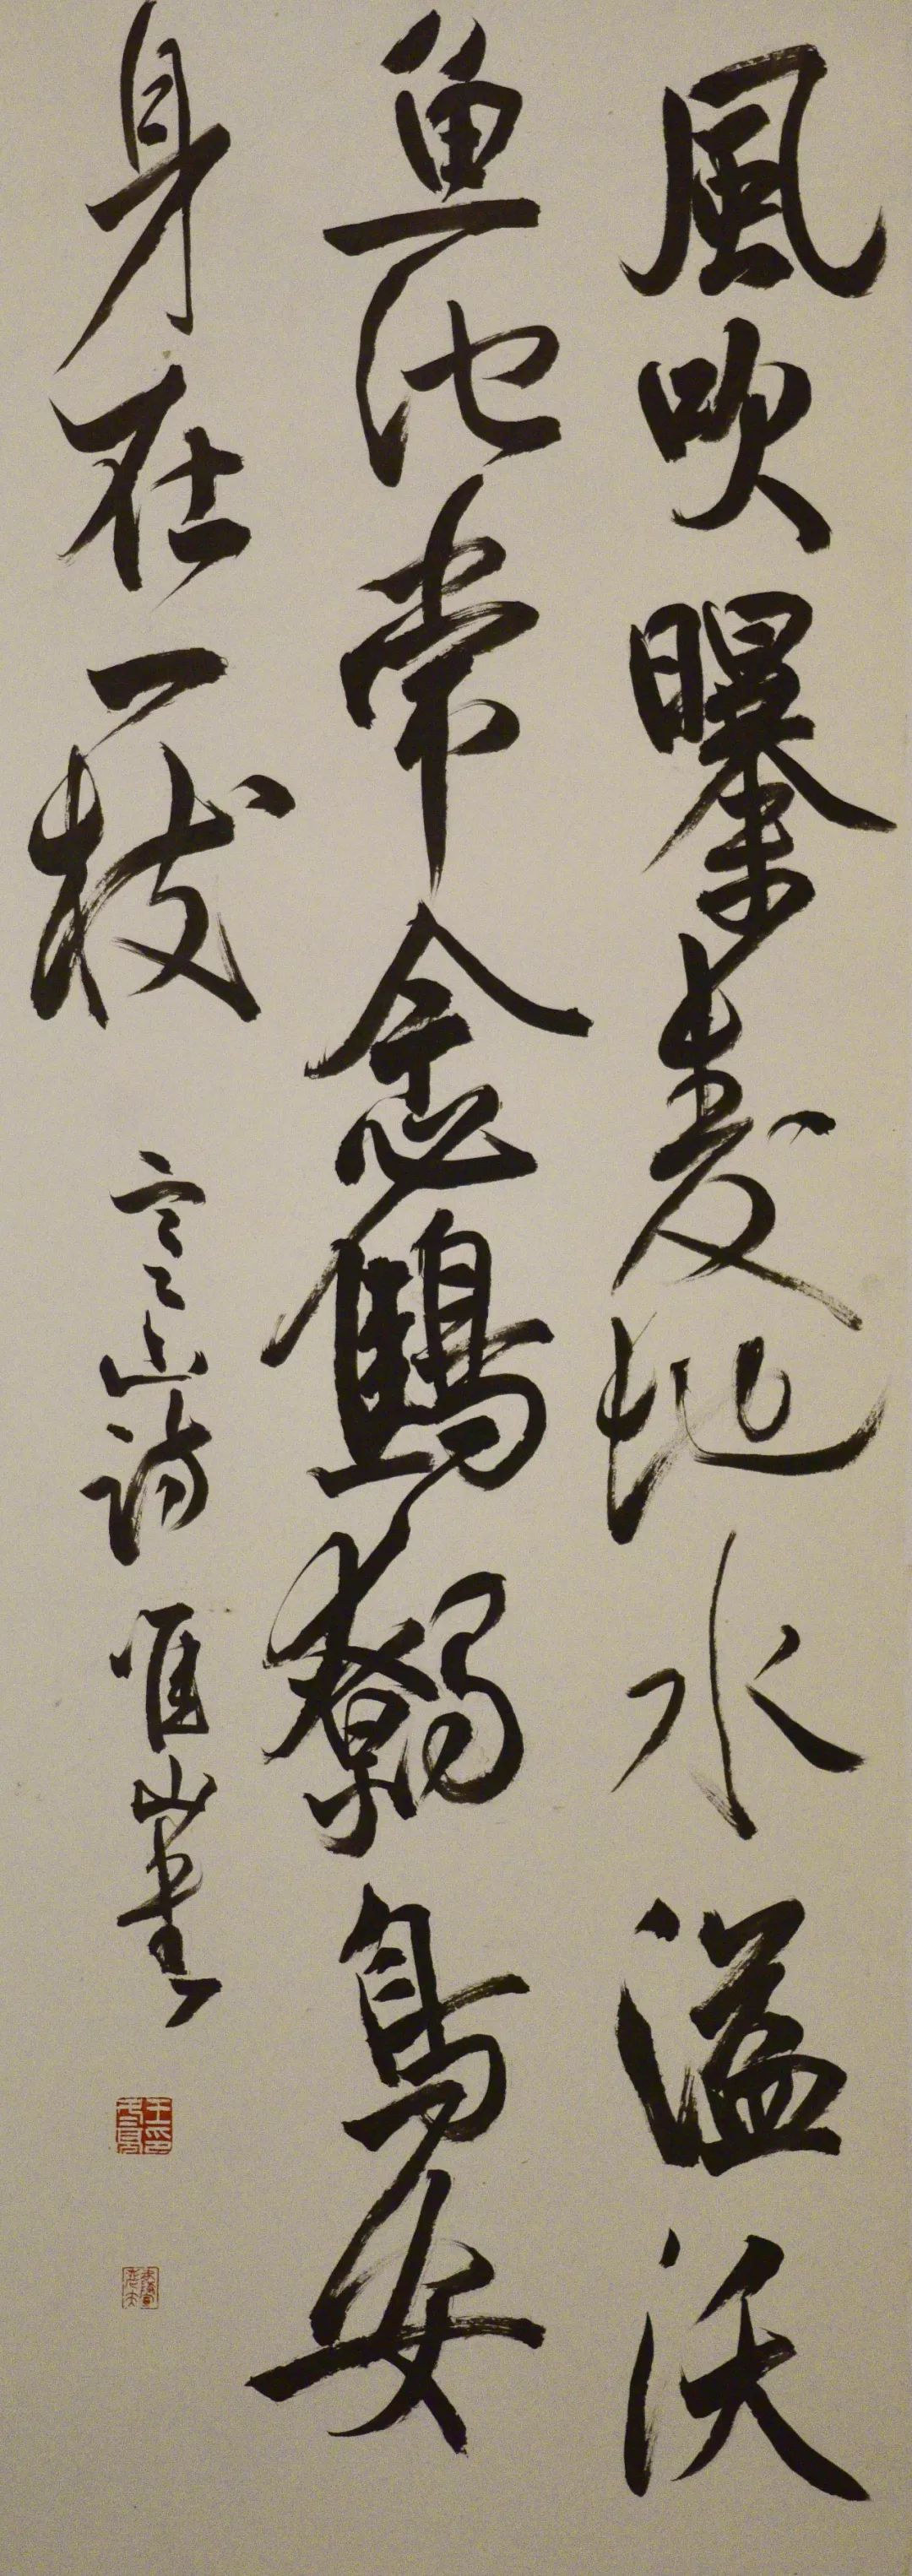 風吹曝麦地水溢沃
魚池常念鷦鷯鳥安
身在一枝
寒山詩 唯山書